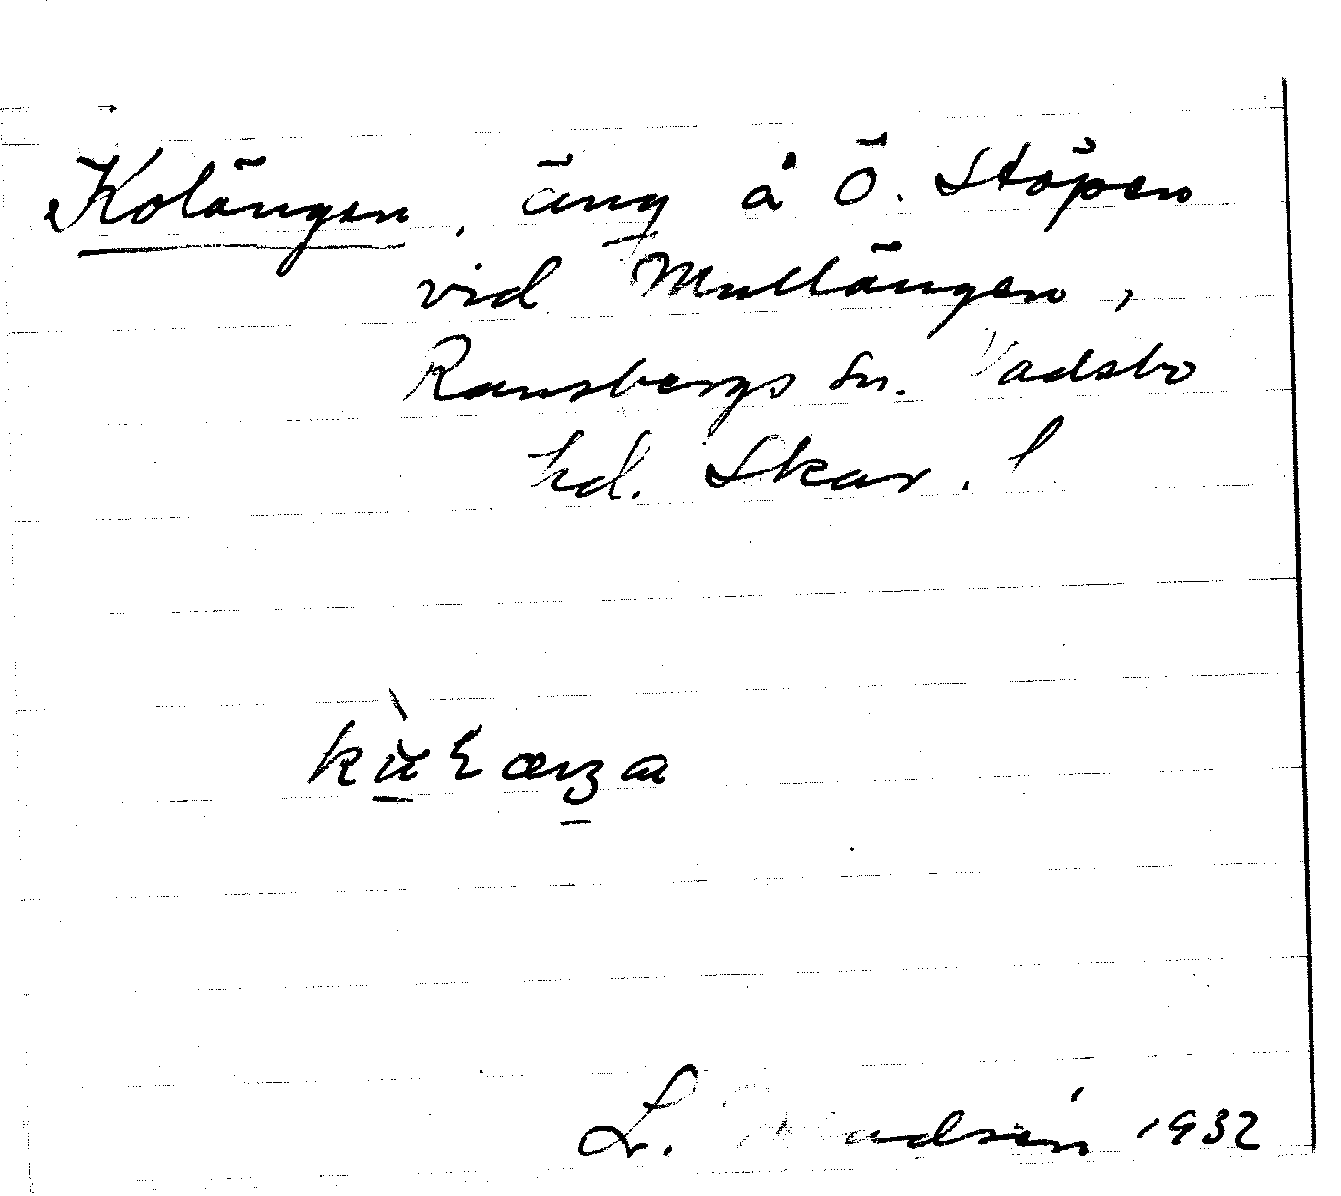 Kolängen, äng å Ö. Stöpen
vid Mullängen,
Ransbergs sn. Vadsbo
hd. Skar. l
L. 1932